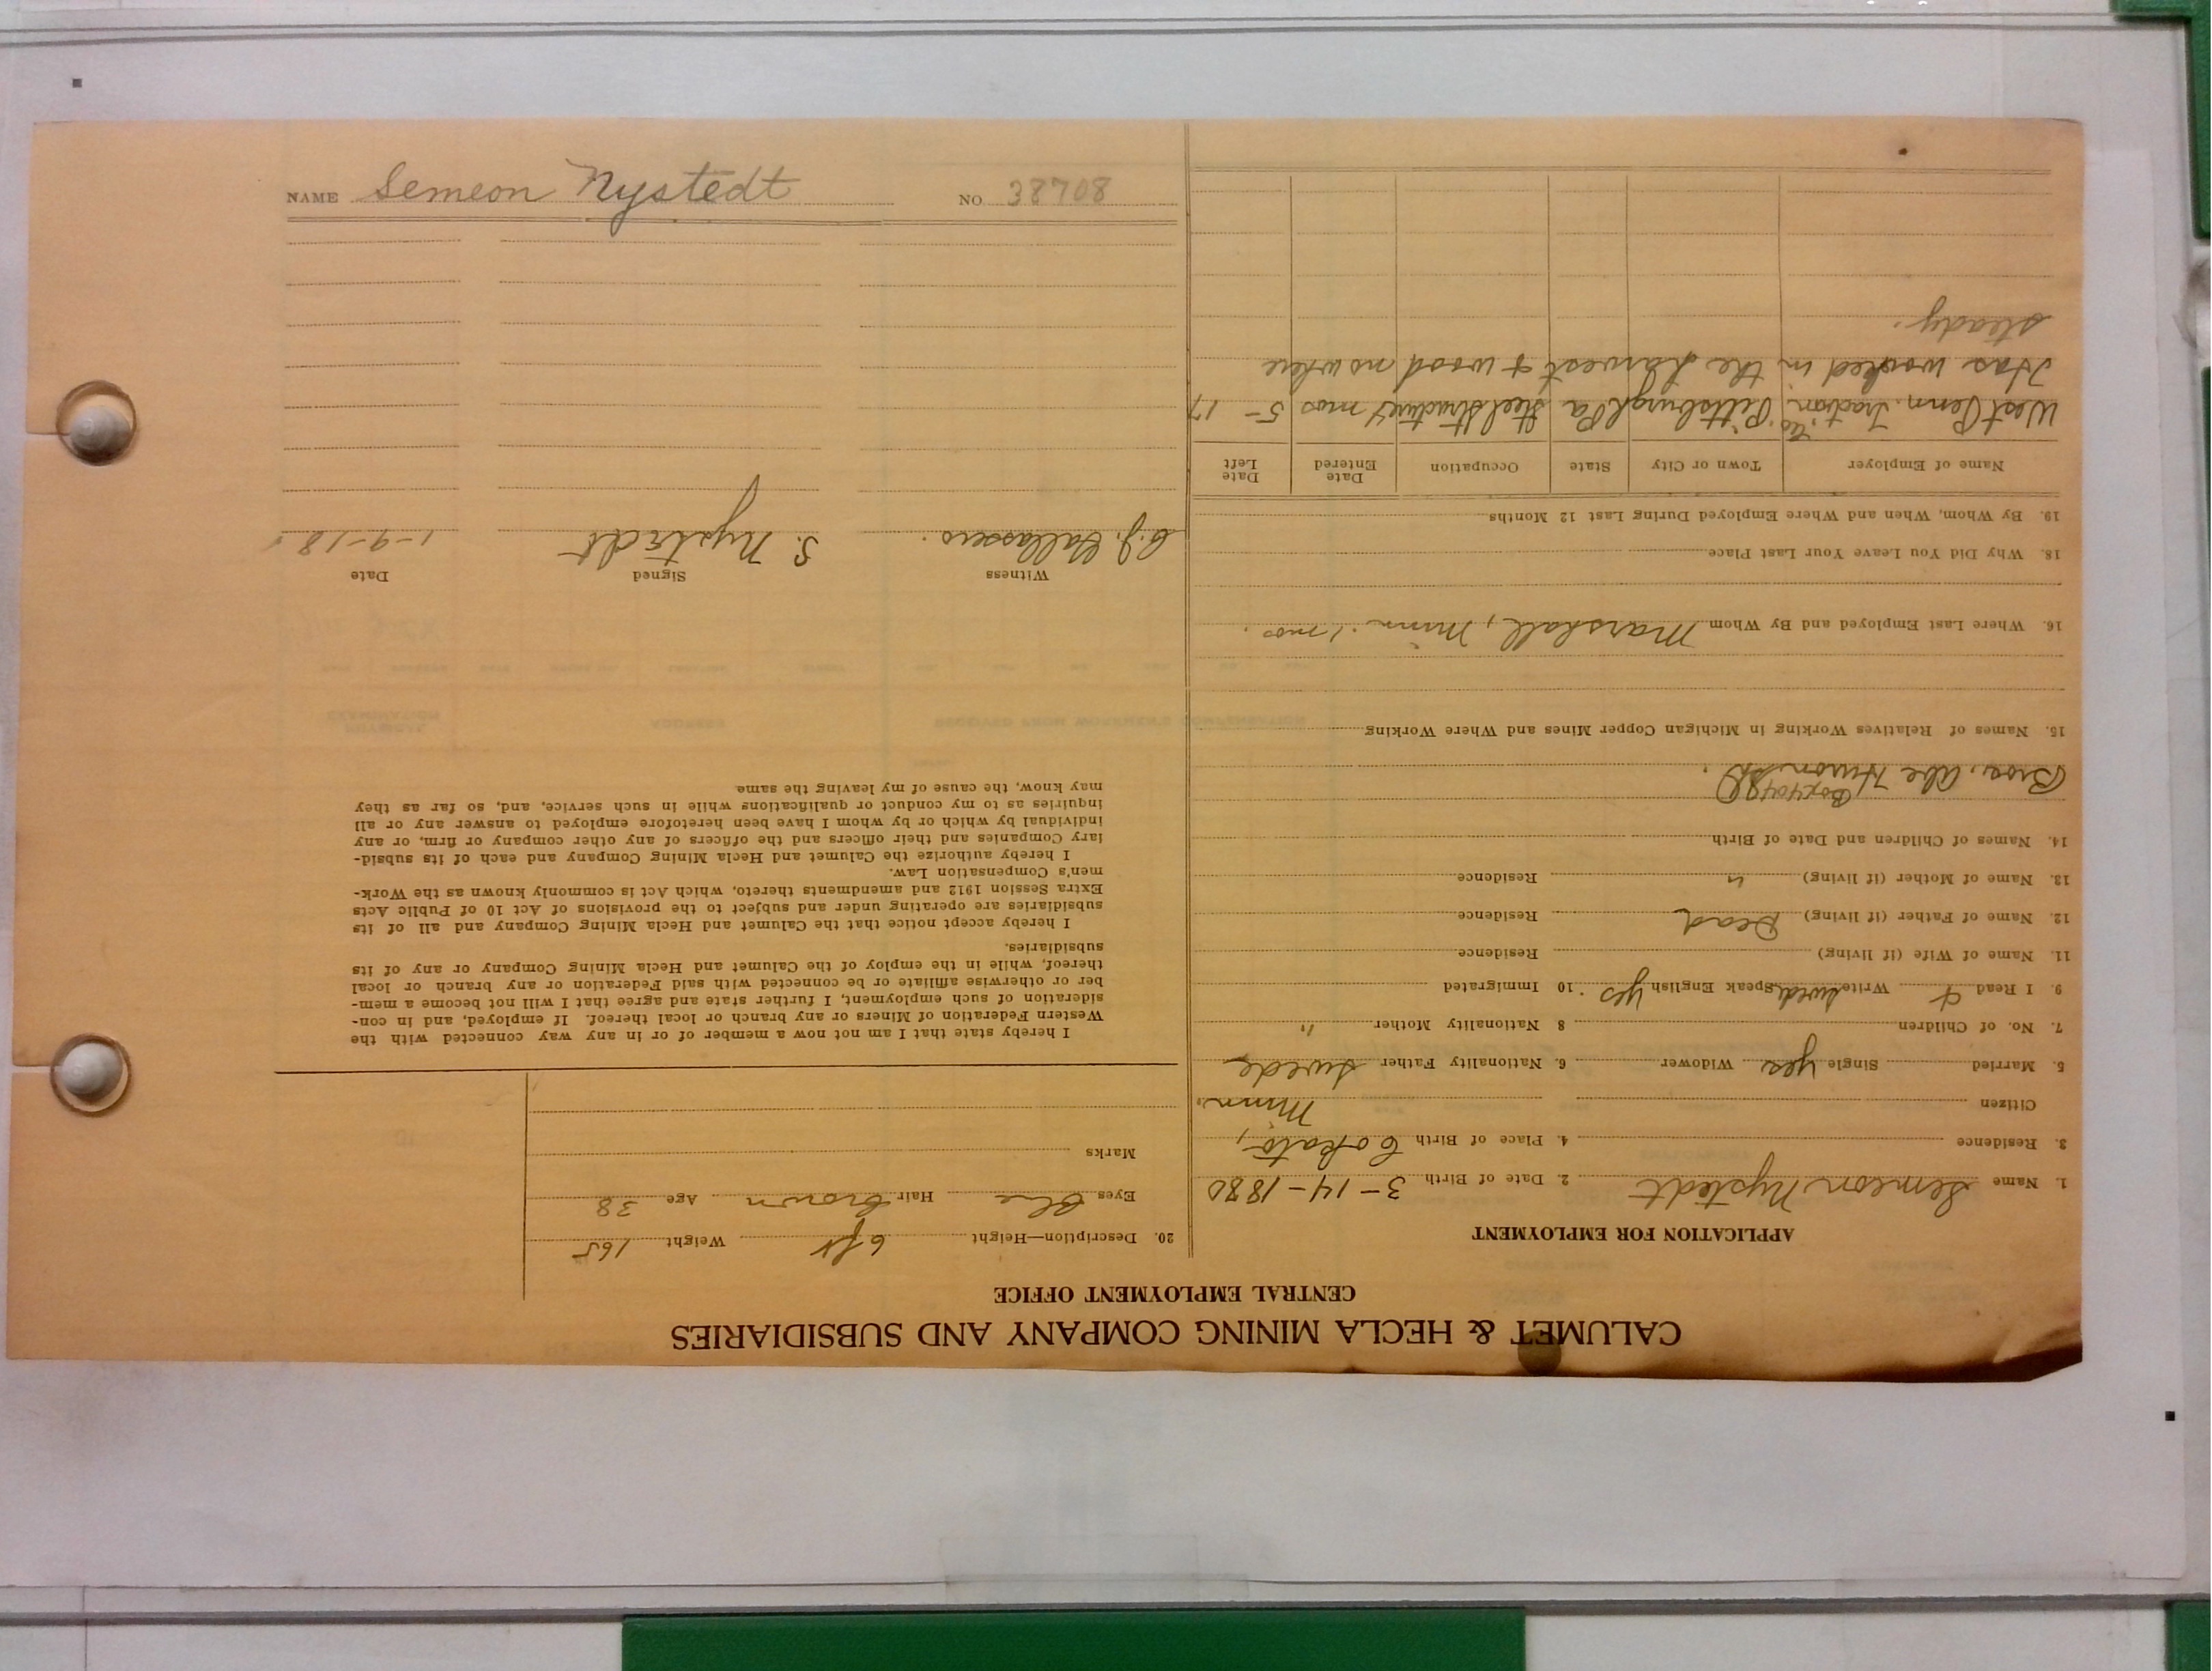 NAME Semeon Nystedt NO. 38708
CALUMET & HECLA MINING COMPANY AND SUBSIDIARIES
CENTRAL EMPLOYMENT OFFICE
APPLICATION FOR EMPLOYMENT
1. Name Semeon Nystedt 2. Date of Birth 3-14-1880
3. Residence 4. Place of Birth Cokato,
Citizen Minn.
5. Married Single yes Widower 6. Nationality Father Swede
7. No. of Children 8 Nationality Mother "
9. I Read & Write Swede Speak English yes. 10 Immigrated
11. Name of Wife (if living) Residence
12. Name of Father (if living) Dead Residence
13. Name of Mother (if living) " Residence
14. Names of Children and Date of Birth
Box 408
Bros, Abe Huron
15. Names of Relatives Working in Michigan Copper Mines and Where Working
16. Where Last Employed and By Whom Marshall, Minn. 1 mos.
18. Why Did You Leave Your Last Place
19. By Whom, When and Where Employed During Last 12 Months
Name of Employer Town or City State Occupation Date Entered Date Left
West Penn. Traction Co. Pittsburgh Pa Steel Structure mos 5-17
Has worked in the harvest & wood no where
steady.
20. Description—Height 6 ft Weight 165
Eyes Blue Hair brown Age 38
Marks
I hereby state that I am not now a member of or in any way connected with the
Western Federation of Miners or any branch or local thereof. If employed, and in con-
sideration of such employment, I further state and agree that I will not become a mem-
ber or otherwise affiliate or be connected with said Federation or any branch or local
thereof, while in the employ of the Calumet and Hecla Mining Company or any of its
subsidiaries.
I hereby accept notice that the Calumet and Hecla Mining Company and all of its
subsidiaries are operating under and subject to the provisions of Act 10 of Public Acts
Extra Session 1912 and amendments thereto, which Act is commonly known as the Work-
men's Compensation Law.
I hereby authorize the Calumet and Hecla Mining Company and each of its subsid-
iary Companies and their officers and the officers of any other company or firm, or any
individual by which or by whom I have been heretofore employed to answer any or all
inquiries as to my conduct or qualifications while in such service, and, so far as they
may know, the cause of my leaving the same.
Witness Signed Date
S. Nystedt 1-9-18